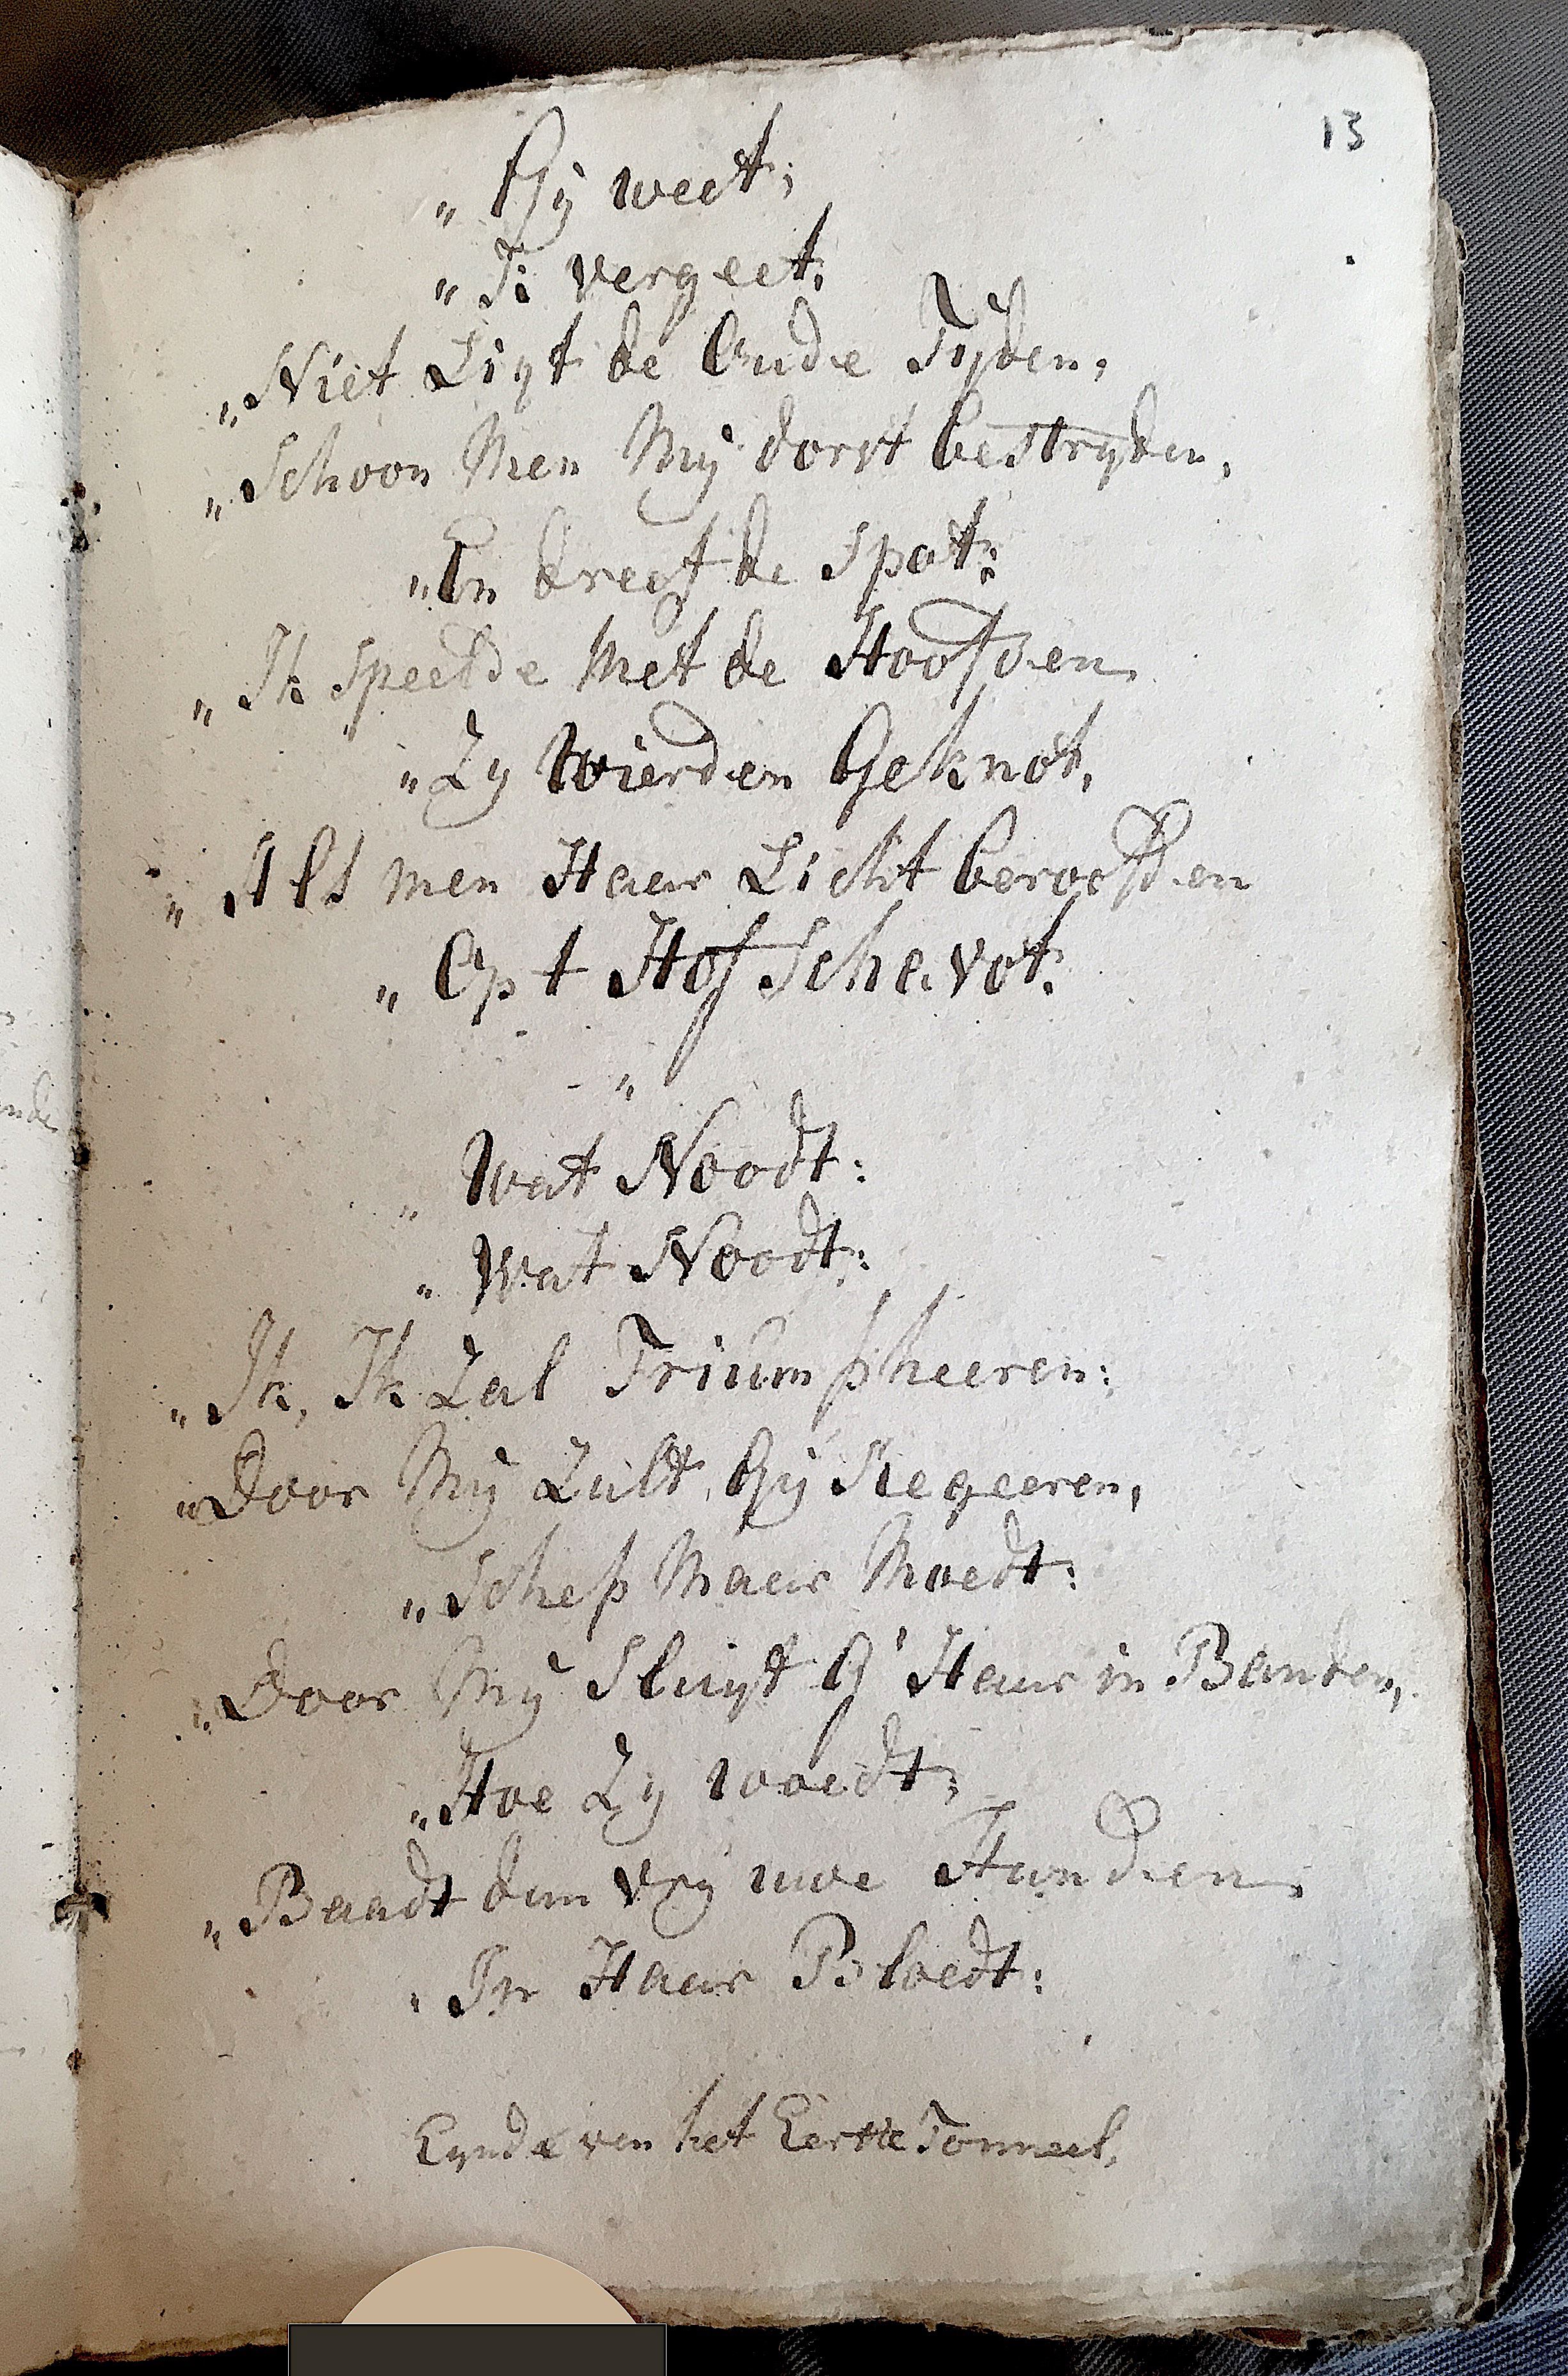 13
„ Gy weet;
„ Ti vergeet;
„ Niet Ligt de Oude Tyden,
„ Schoon Men My dorst bestryden,
„ En dreef de Spot:
„ Ik Speelde Met de Hoofden
„ Zy Wierden Geknot,
„ Als men Haar Licht beroofden
„ Op t Hof Schavot:
„
„ Wat Noodt:
„ Wat Noodt:
„ Ik, Ik Zal Triumpheeren:
„ Door My Zult Gy Regeeren,
„ Schep Maar Moedt:
„ Door My Sluyt G' Haar in Banden,
„ Hoe Zy woedt;
„ Baadt dan vry uwe Handen
„ In Haar Bloedt:
Eynde van het Eerste Tonneel,